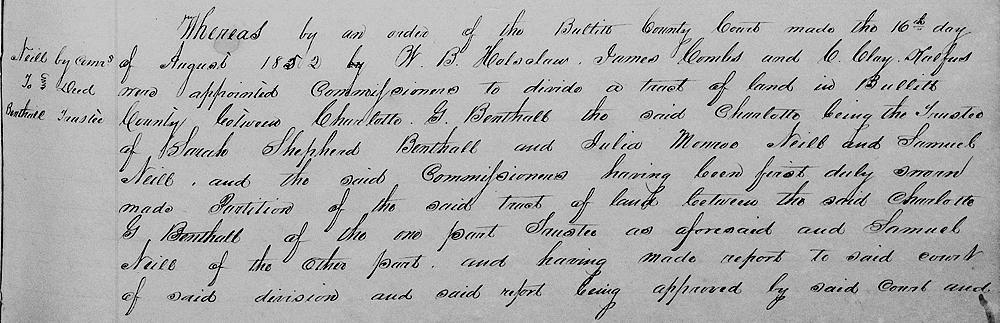 Whereas by an order of the Bullitt County Court made the 16th day
Neill by Comrs
To } Deed
Benthall Trustee
of August 1852 by W. B. Holsclaw. James Combs and C. Clay Kalfus
were appointed Commissioners to divide a tract of land in Bullitt
County between Charlotte. G. Benthall the said Charlotte being the Trustee
of Sarah Shepherd Benthall and Julia Monroe Neill and Samuel
Neill. and the said Commissioners having been first duly sworn
made Partition of the said tract of land between the said Charlotte
G Benthall of the one part Trustee as aforesaid and Samuel
Neill of the other part. and having made report to said court
of said division and said report being approved by said Court and